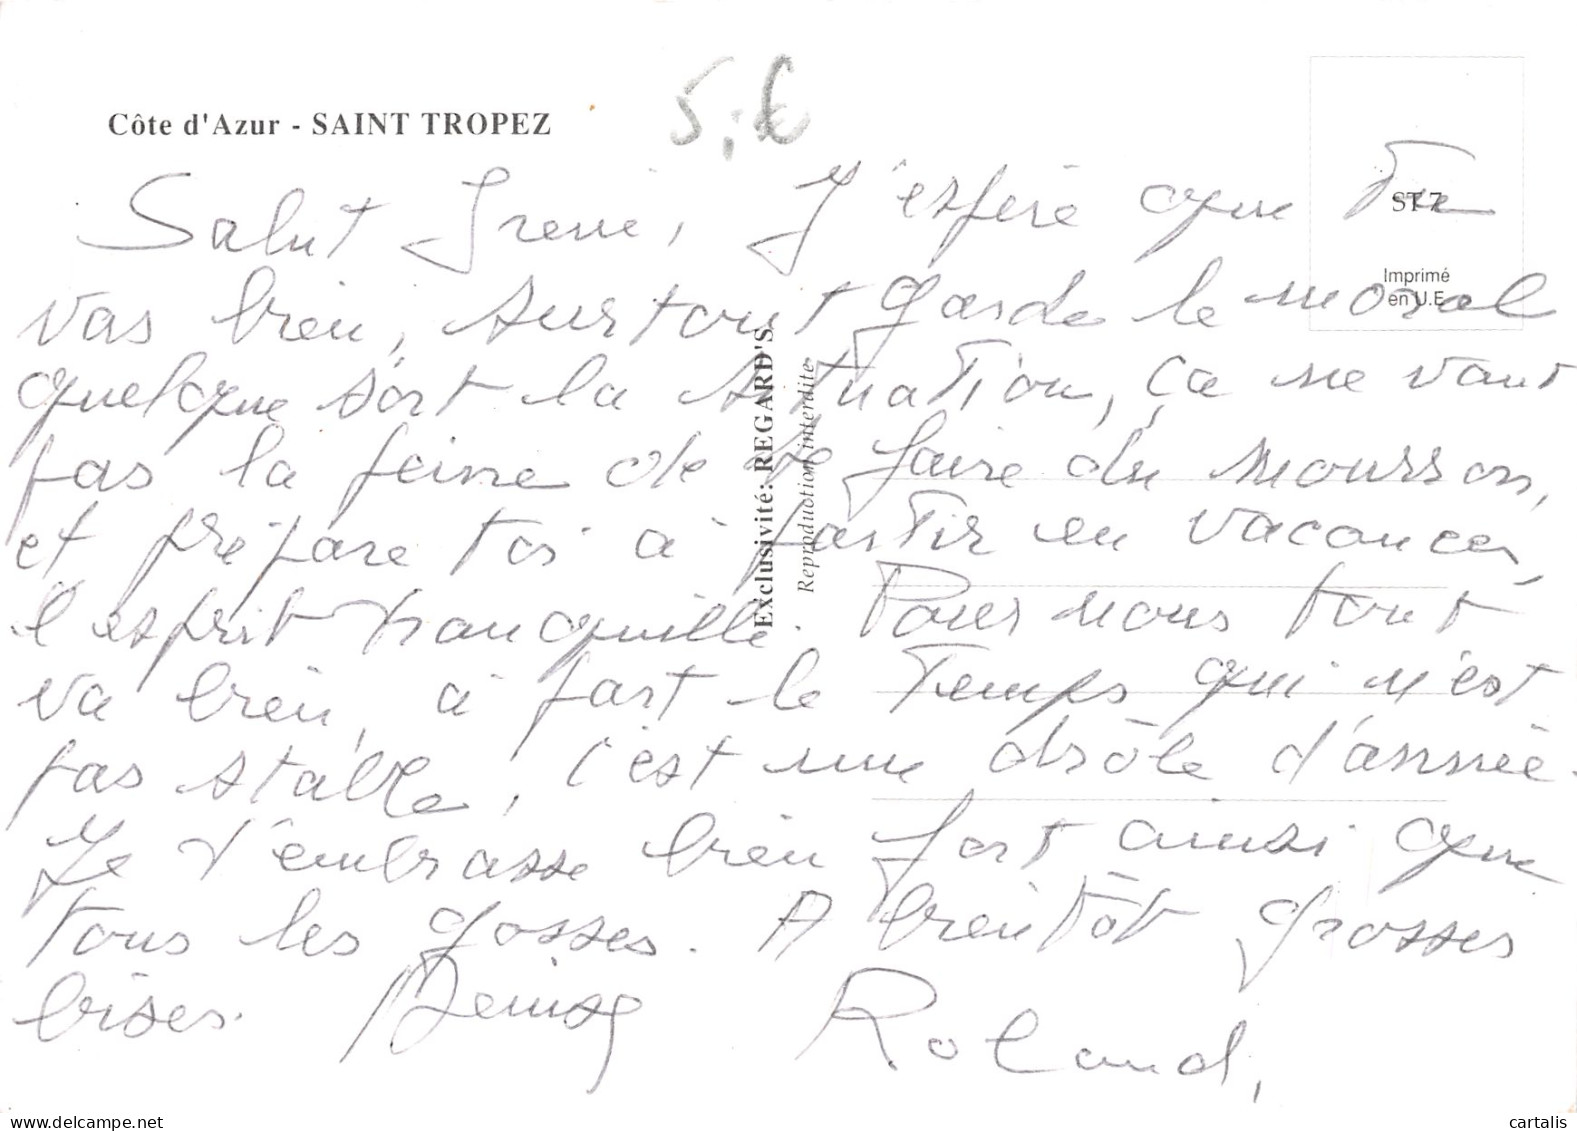 5,€
Côte d'Azur - SAINT TROPEZ
ST 7
Imprimé
en U.E.
Exclusivité: REGARD'S.
Reproduction interdite
Salut Irene, J'espère que Tu
vas bien, surtout garde le moral
quelque sort la situation, ça ne vaut
pas la peine de se faire du mourson,
et prépare toi à partir en vacances,
l'esprit tranquille. Pour nous tout
va bien, à part le Temps qui n'est
pas stable, c'est une drôle d'année.
Je t'embrasse bien fort ainsi que
tous les gosses. A bientôt grosses
bises. Denise Roland,
cartalis